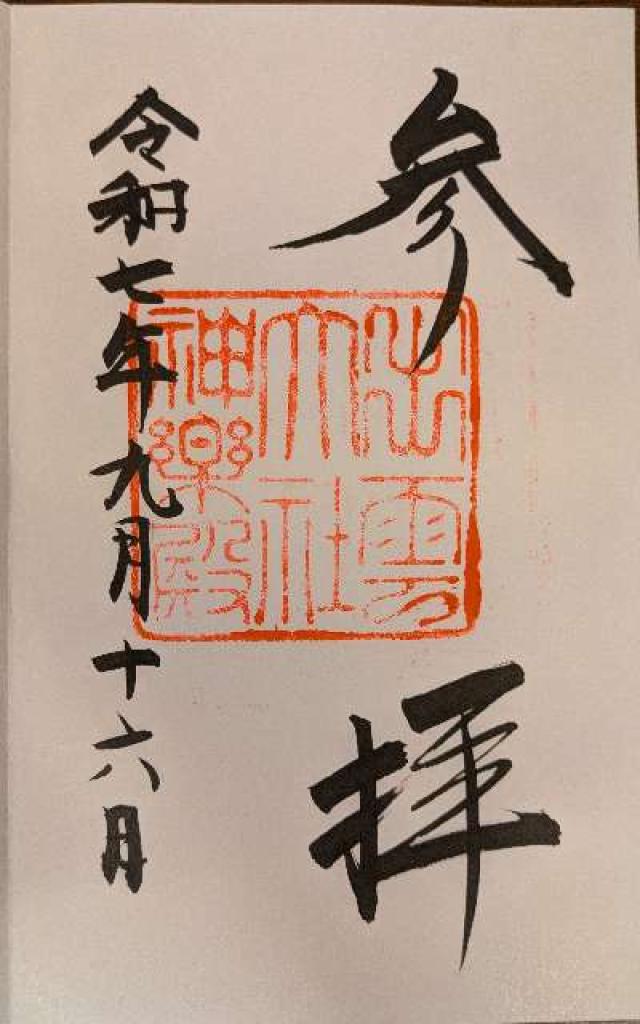 参拝
出雲
大社
神楽殿
令和七年九月十六日